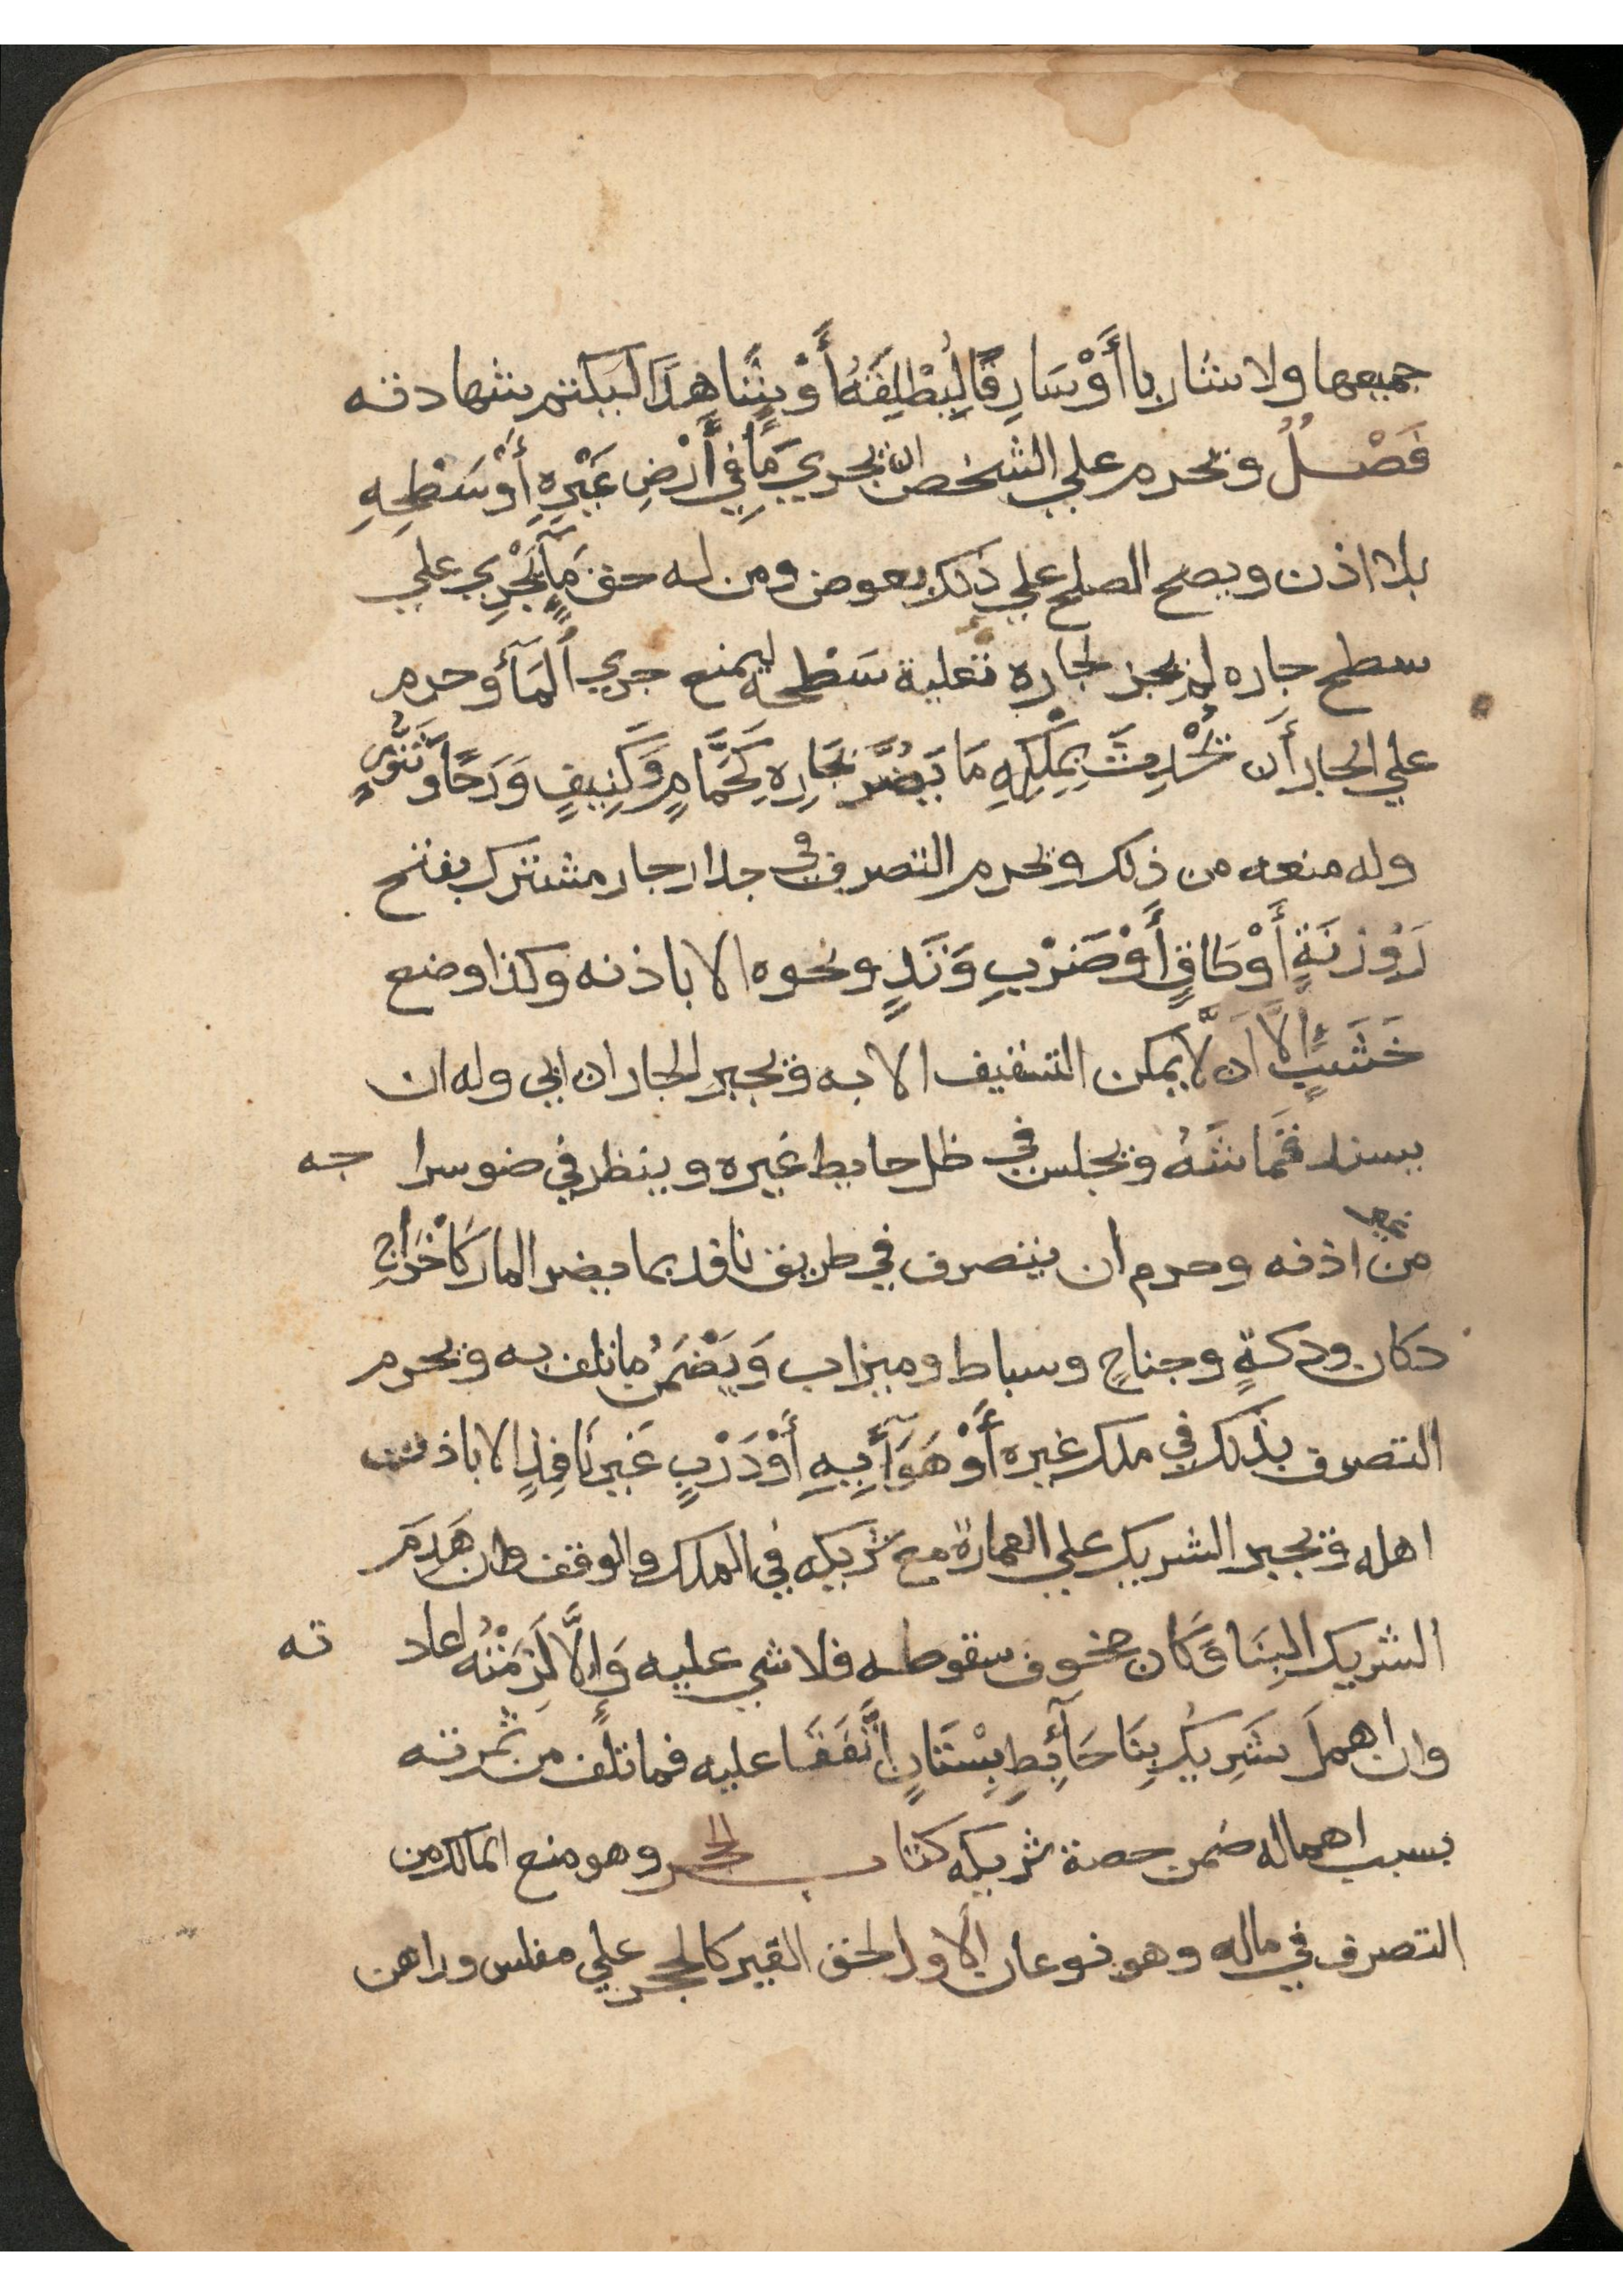 جميعها ولا شاربا أَوْ سَارِقًا لِيُطْلِقَهُ أَوْ شَاهِدًا ليكتم شهادته
فَصْلٌ ويحرم علي الشخص ان يجري مَأً فِي أَرْضِ غَيْرِهِ أَوْ سَطْحِهِ
بلا اذن ويصح الصلح علي ذلك بعوض ومن له حق مَآءٍ يَجْرِي علي
سطح جاره لم يجز لجاره تعلية سَطْحه ليمنع جري المَآءَ وحرم
علي الجار أَن يُحْدِثَ بِمِلْكِهِ مَا يَضُرَّ بَجَارِهِ كَحَمَّامٍ وَكَنِيفٍ وَرَحًا وَتَنُّورٍ
وله منعه من ذلك ويحرم التصرف في جدار جار مشترك بفتح
رَوْزَنَةٍ أَوْ طَاقٍ أَوْ ضَرْبِ وَتَدٍ ونحوه الا باذنه وكذا وضع
خَشَبٍ إلَّا اَن لَّا يمكن التسقيف الا به ويجبر الجار ان ابي وله ان
يسند قُمَاشَهُ ويجلس في ظل حايط غيره وينظر في ضو سرا جه
من غير اذنه وحرم ان يتصرف في طريق نافد بما يضر المار كَأخْرَاجِ
دكان ودكةٍ وجناحٍ وسباط وميزاب وَيَضْمَنُ ما تلف به ويحرم
التصرف بذلك في ملك غيره أَوْ هَوَآئِهِ أَوْ دَرْبٍ غَيرِ نَافِدٍ الا باذن
اهله ويجبر الشريك علي العمارة مع شريكه في الملك والوقف وان هَدَمَ
الشريك البِنَا وَكان لخوف سقوطه فلا شي عليه وَإلَّا لَزِمَتْهُ اعاد ته
وان اهمل شَرِيكُ بِنَا حَآئِطٍ بِسْتَانٍ اتَّفَقَا عليه فما تلف من ثمرته
بسبب اهماله ضمن حصة شريكه كتاب الحجر وهو منع المالك من
التصرف في ماله وهو نوعان الاول لحق الغير كالحجر علي مفلس وراهن